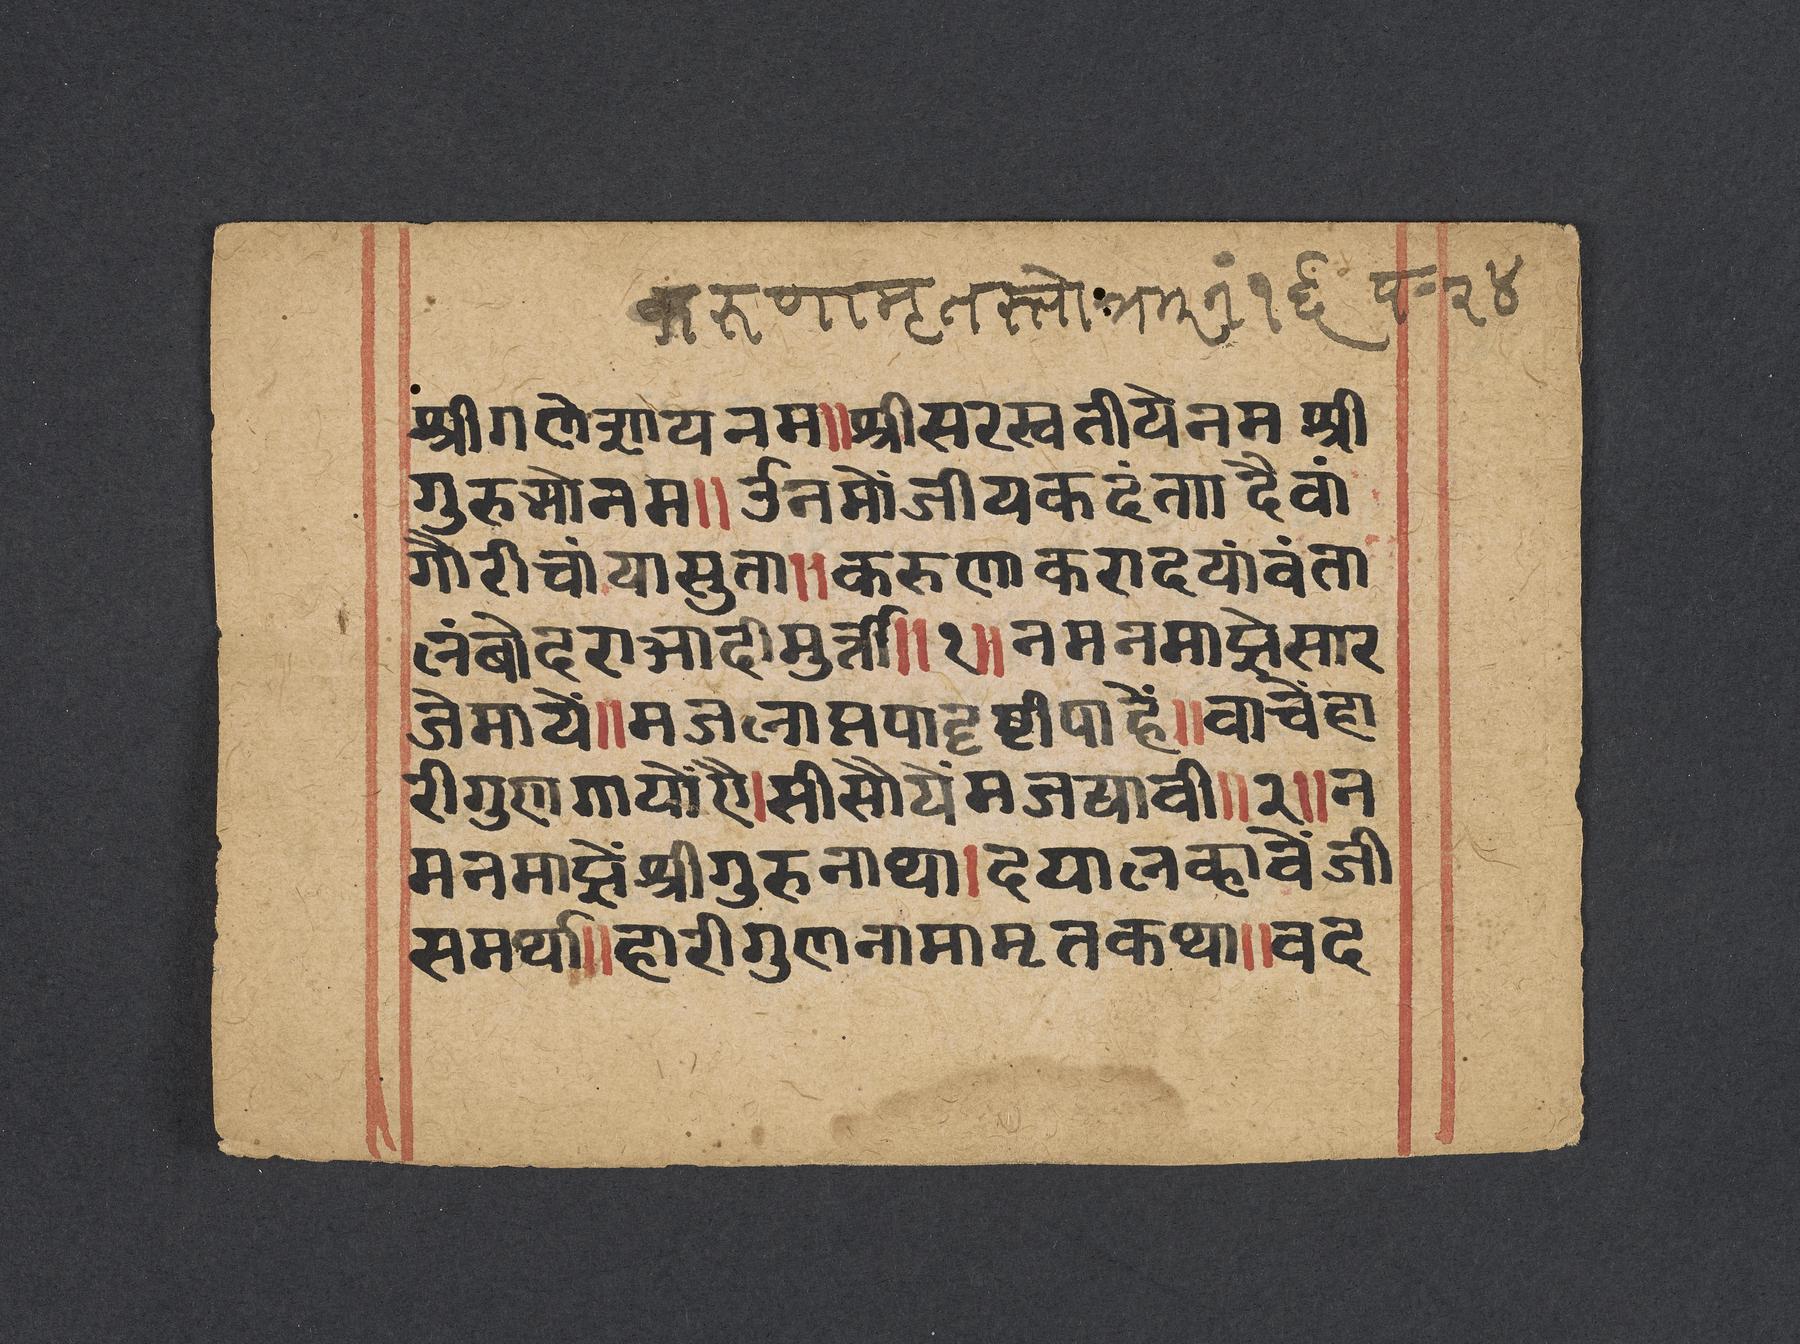 करूणामृतस्तोत्र १६ प = २४
श्रीगणेशायनम॥श्रीसरस्वतीयेनम श्री
गुरुभ्योनम॥ उँनमोंजीयकदंताा दैवां
गौरीचांयासुता॥करुणाकरादयांवंता
लंबोदराआदीमुर्त्ती॥१॥नमनमाझेसार
जेमायें॥मजलाप्तपादृष्टीपाहें॥वाचेंहा
रीगुणगायोंऐ।सीसौयेंमजद्यावी॥२॥न
मनमाझेंश्रीगुरुनाथा।दयालकावेंजी
समर्था॥हारीगुणनामामृतकथा॥वद